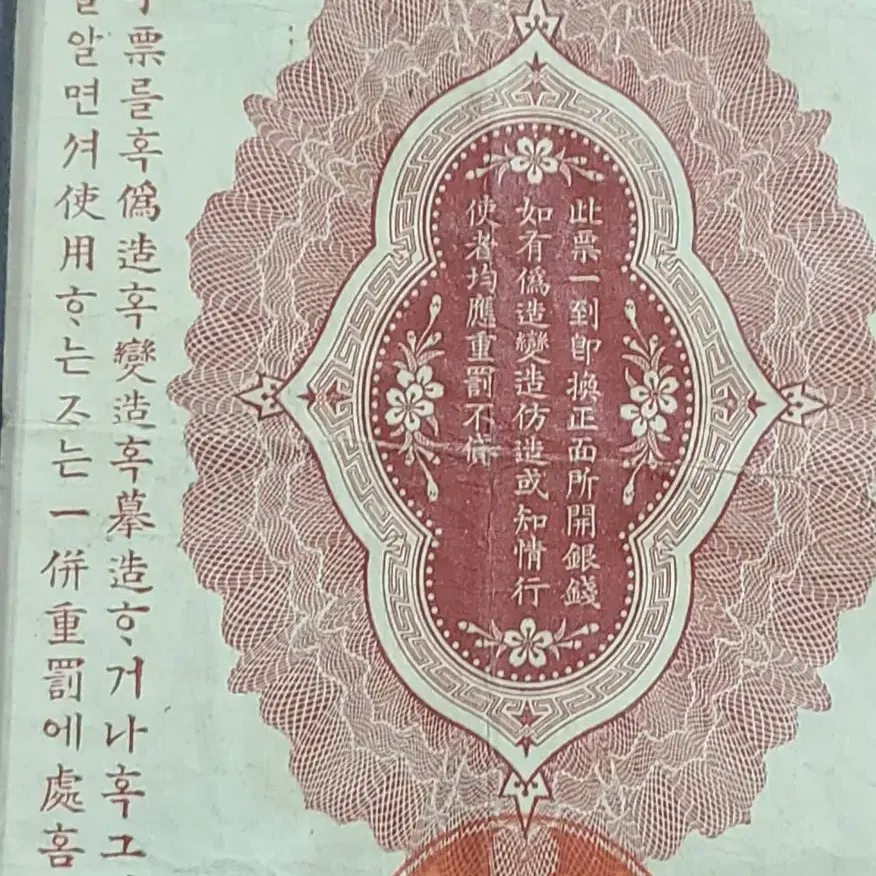 此票一到卽換正面所開銀錢
如有僞造變造仿造或知情行
使者均應重罰不貸
票를혹僞造혹變造혹摹造ᄒᆞ거나혹그
알면셔使用ᄒᆞ는ᄌᆞ는一併重罰에處홈